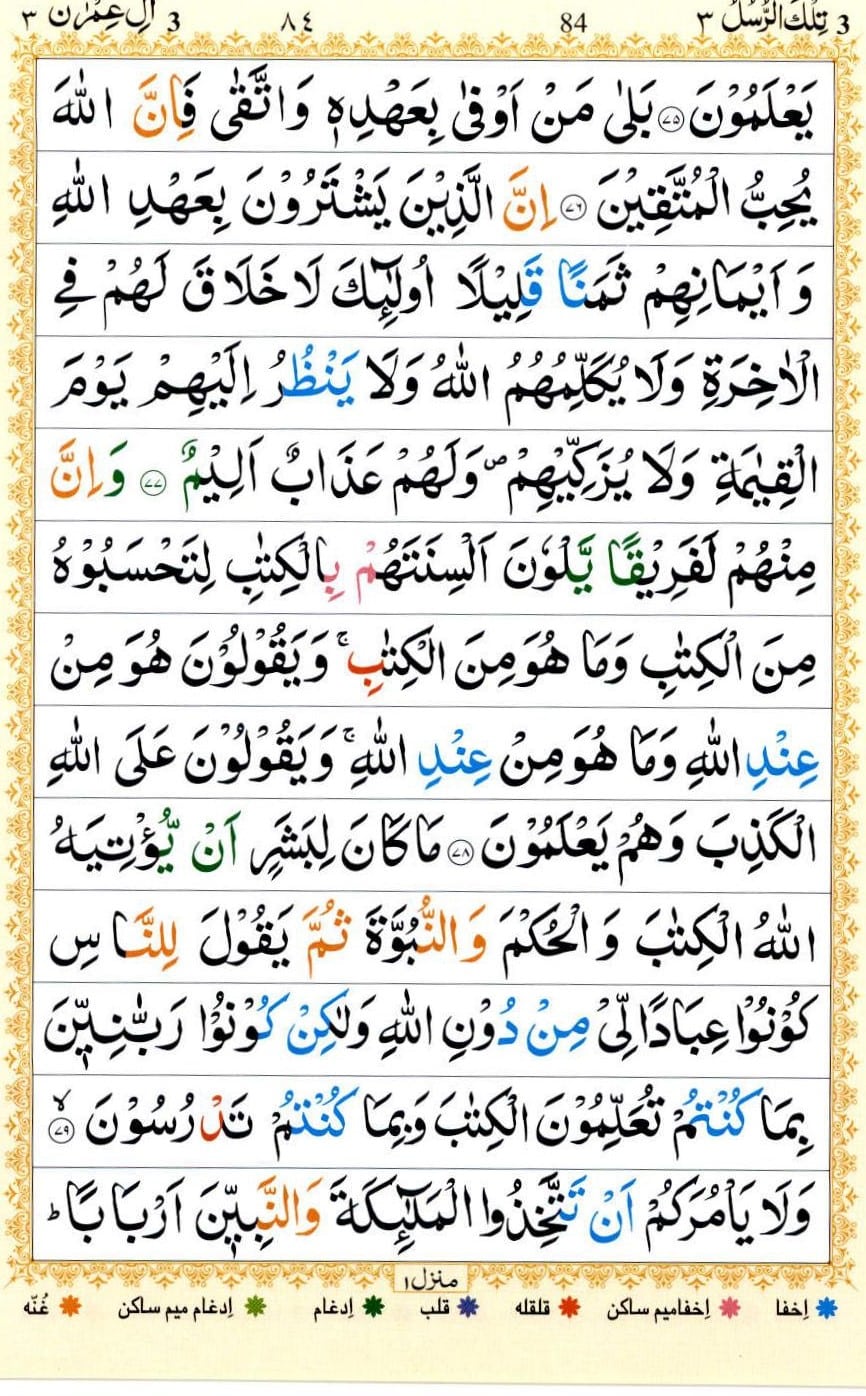 3 تِلْكَ الرُّسُلُ ٣ 84 ٨٤ 3 اٰلِ عِمْرٰن ٣
يَعْلَمُوْنَ ﴿۷۵﴾ بَلٰى مَنْ اَوْفٰى بِعَهْدِهٖ وَاتَّقٰى فَاِنَّ اللّٰهَ
يُحِبُّ الْمُتَّقِيْنَ ﴿۷۶﴾ اِنَّ الَّذِيْنَ يَشْتَرُوْنَ بِعَهْدِ اللّٰهِ
وَاَيْمَانِهِمْ ثَمَنًا قَلِيْلًا اُولٰٓئِكَ لَا خَلَاقَ لَهُمْ فِى
الْاٰخِرَةِ وَلَا يُكَلِّمُهُمُ اللّٰهُ وَلَا يَنْظُرُ اِلَيْهِمْ يَوْمَ
الْقِيٰمَةِ وَلَا يُزَكِّيْهِمْ ۖ وَلَهُمْ عَذَابٌ اَلِيْمٌ ﴿۷۷﴾ وَاِنَّ
مِنْهُمْ لَفَرِيْقًا يَّلْوٗنَ اَلْسِنَتَهُمْ بِالْكِتٰبِ لِتَحْسَبُوْهُ
مِنَ الْكِتٰبِ وَمَا هُوَ مِنَ الْكِتٰبِ ۚ وَيَقُوْلُوْنَ هُوَ مِنْ
عِنْدِ اللّٰهِ وَمَا هُوَ مِنْ عِنْدِ اللّٰهِ ۚ وَيَقُوْلُوْنَ عَلَى اللّٰهِ
الْكَذِبَ وَهُمْ يَعْلَمُوْنَ ﴿۷۸﴾ مَا كَانَ لِبَشَرٍ اَنْ يُّؤْتِيَهُ
اللّٰهُ الْكِتٰبَ وَالْحُكْمَ وَالنُّبُوَّةَ ثُمَّ يَقُوْلَ لِلنَّاسِ
كُوْنُوْا عِبَادًا لِّىْ مِنْ دُوْنِ اللّٰهِ وَلٰكِنْ كُوْنُوْا رَبّٰنِيّٖنَ
بِمَا كُنْتُمْ تُعَلِّمُوْنَ الْكِتٰبَ وَبِمَا كُنْتُمْ تَدْرُسُوْنَ ۙ﴿۷۹﴾
وَلَا يَاْمُرَكُمْ اَنْ تَتَّخِذُوا الْمَلٰٓئِكَةَ وَالنَّبِيّٖنَ اَرْبَابًا ؕ
منزل ۱
اِخفا اِخفامیم ساکن قلقله قلب اِدغام اِدغام میم ساکن غُنّه